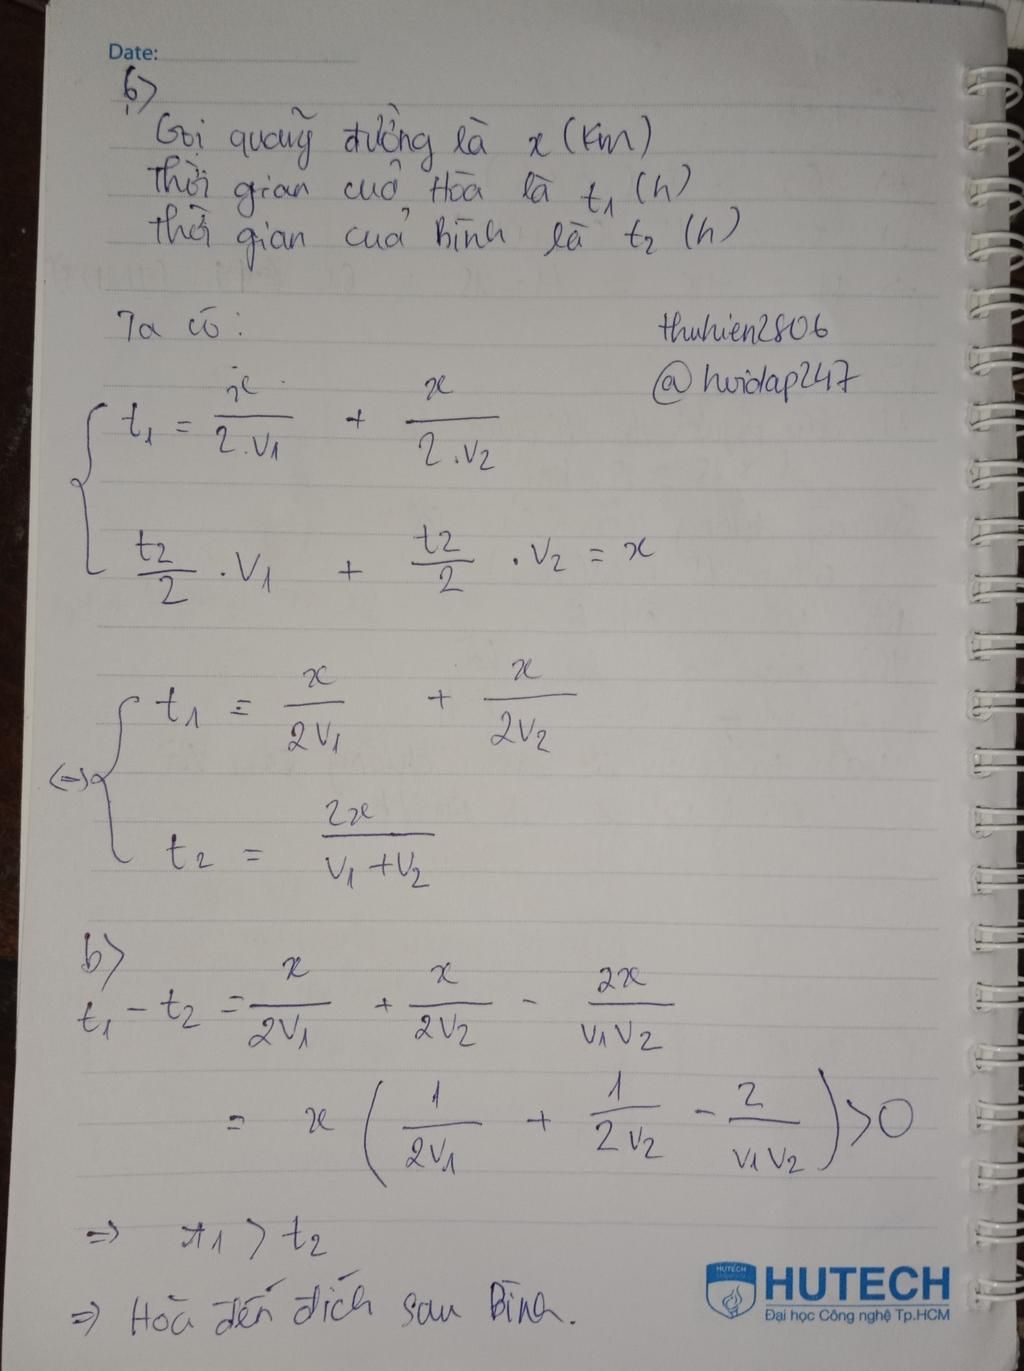 Date:
b)
Gọi quãng đường là x (Km)
Thời gian của Hòa là t₁ (h)
Thời gian của Bình là t₂ (h)
Ta có:
thuhien2806
@hoidap247
{ t₁ = x/(2.V₁) + x/(2.V₂)
t₂/2 . V₁ + t₂/2 . V₂ = x
(=) { t₁ = x/(2V₁) + x/(2V₂)
t₂ = 2x/(V₁+V₂)
b)
t₁ - t₂ = x/(2V₁) + x/(2V₂) - 2x/(V₁V₂)
= x (1/(2V₁) + 1/(2V₂) - 2/(V₁V₂)) > 0
=> t₁ > t₂
=> Hòa đến đích sau Bình.
HUTECH
HUTECH
Đại học Công nghệ Tp.HCM